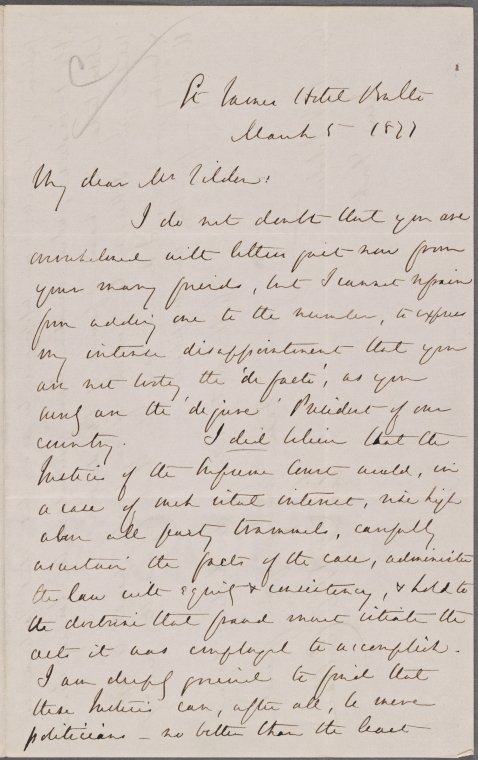 St James Hotel Balto
March 5 1877
My dear Mr Tilden:
I do not doubt that you are
overwhelmed with letters just now from
your many friends, but I cannot refrain
from adding one to the number, to express
my intense disappointment that you
are not today the 'de facto', as you
surely are the 'de jure' President of our
country. I did believe that the
Justices of the Supreme Court would, in
a case of such vital interest, rise high
above all party trammels, carefully
ascertain the facts of the case, administer
the law with equity & consistency, & hold to
the doctrine that fraud must vitiate the
acts it was employed to accomplish.
I am deeply grieved to find that
these Justices can, after all, be mere
politicians - no better than the least